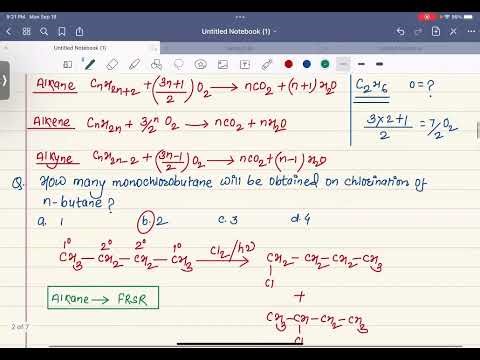 9:21 PM Mon Sep 18
96%
Untitled Notebook (1)
Untitled Notebook (1)
Alkane CnH2n+2 + (3n+1/2) O2 → nCO2 + (n+1) H2O
C2H6 O = ?
3×2+1/2 = 7/2 O2
Alkene CnH2n + 3/2 n O2 → nCO2 + nH2O
Alkyne CnH2n-2 + (3n-1/2) O2 → nCO2 + (n-1) H2O
Q. How many monochlorobutane will be obtained on chlorination of
n-butane ?
a. 1 b. 2 c. 3 d. 4
1° 2° 2° 1°
CH3 – CH2 – CH2 – CH3 Cl2/hν → CH2 – CH2 – CH2 – CH3
Cl
+
Alkane → FRSR
CH3 – CH – CH2 – CH3
Cl
2 of 7